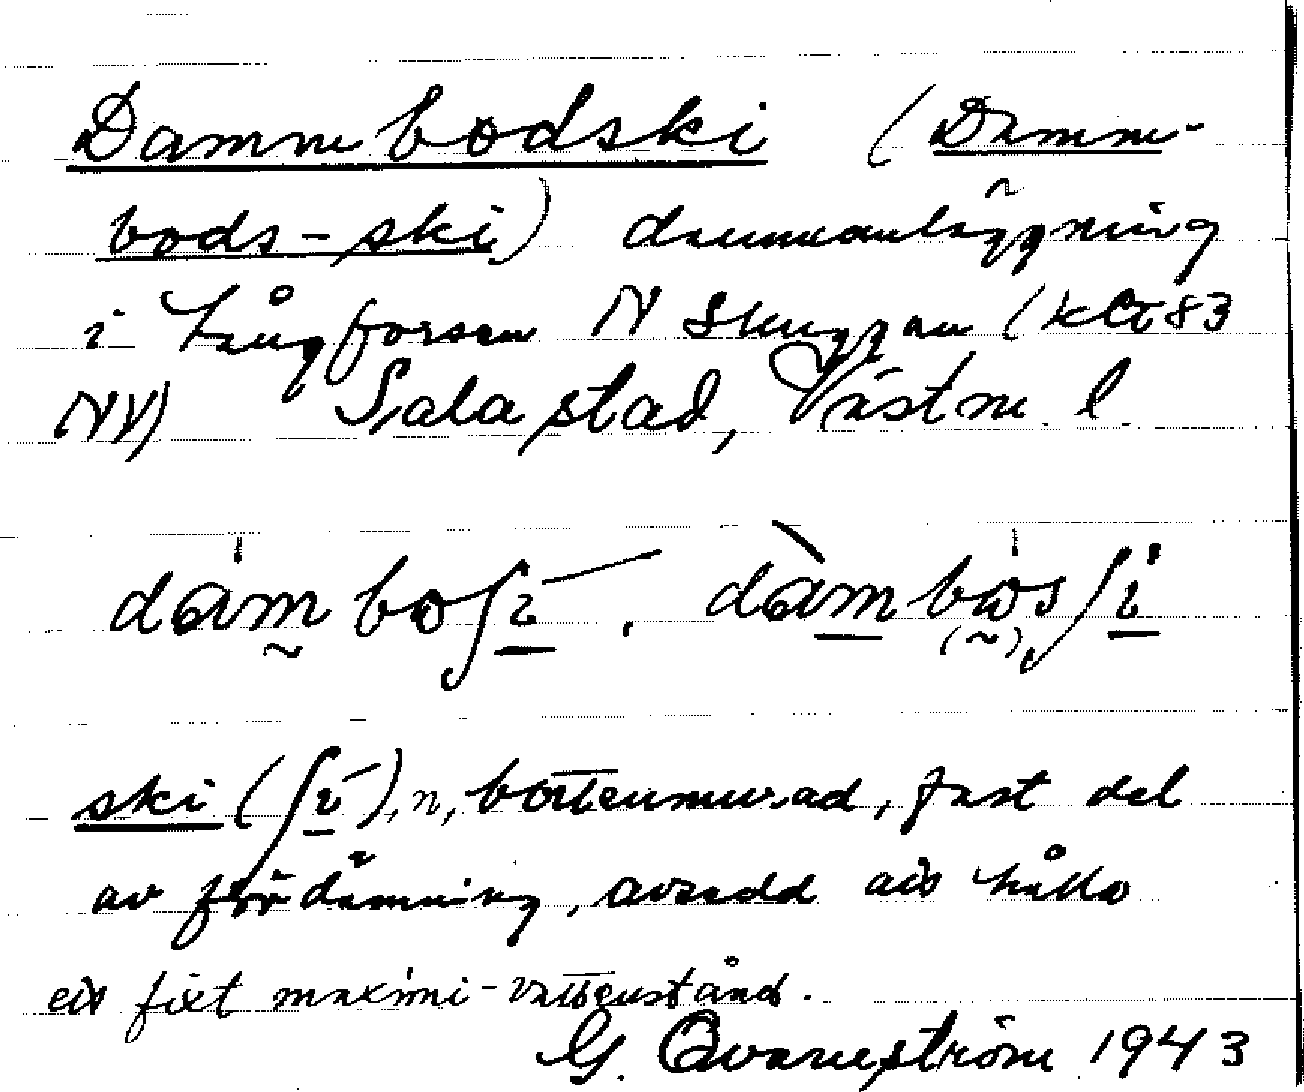 Dammbodski (Damm-
bods-ski) dammanläggning
i Långforsen N Skuggan (kbl 83
NV) Sala stad, Västm. l.
dàm boʃɩ . dàm bωsʃɩ
ski (ʃɩ́), n, bottenmurad, fast del
av fördämning, avsedd att hålla
ett fixt maximi-vattenstånd.
G. Qvarnström 1943